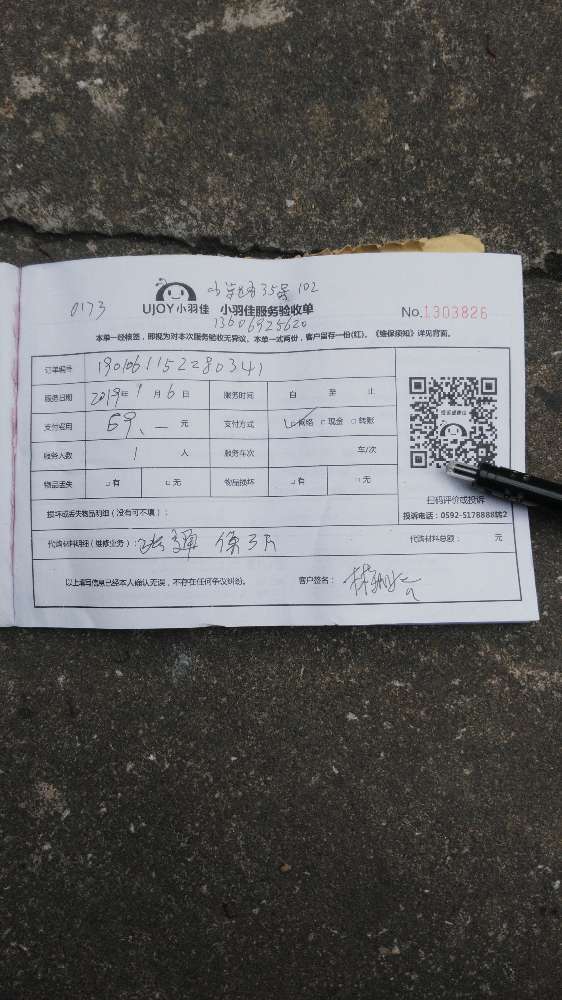 0173
35号 102
UJOY小羽佳 小羽佳服务验收单
No.1303826
13606925620
本单一经核签，即视为对本次服务验收无异议。本单一式两份，客户留存一份(红)。《维保须知》详见背面。
订单编号 1901061152280341
服务日期 2019年 1 月 6 日 服务时间 自 至 止
支付费用 69.— 元 支付方式 ☑网络 □现金 □转账
服务人数 1 人 服务车次 车/次
物品丢失 □有 □无 物品损坏 □有 □无
扫码评价或投诉
投诉电话：0592-5178888转2
损坏或丢失物品明细（没有可不填）：
代购材料明细（维修业务）： 代购材料总额： 元
以上填写信息已经本人确认无误，不存在任何争议纠纷。 客户签名：